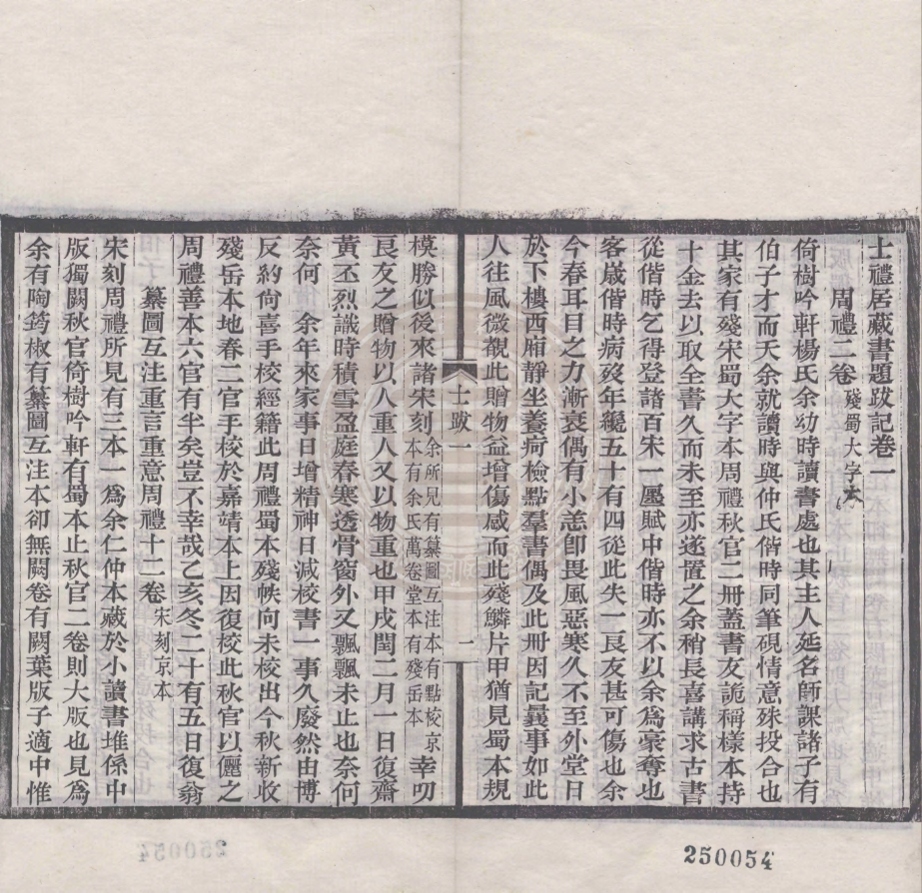 士禮居藏書題跋記卷一
周禮二卷殘蜀大字本
倚樹吟軒楊氏余幼時讀書處也其主人延名師課諸子有
伯子才而夭余就讀時與仲氏偕時同筆硯情意殊投合也
其家有殘宋蜀大字本周禮秋官二册蓋書友詭稱樣本持
十金去以取全書久而未至亦遂置之余稍長喜講求古書
從偕時乞得登諸百宋一廛賦中偕時亦不以余爲豪奪也
客歲偕時病歿年纔五十有四從此失一良友甚可傷也余
今春耳目之力漸衰偶有小恙卽畏風惡寒久不至外堂日
於下樓西廂靜坐養疴檢點羣書偶及此册因記曩事如此
人往風微覩此贈物益增傷感而此殘鱗片甲猶見蜀本規
士跋一
一
模勝似後來諸宋刻余所見有纂圖互注本有點校京本有余氏萬卷堂本有殘岳本幸叨
良友之贈物以人重人又以物重也甲戌閏二月一日復齋
黃丕烈識時積雪盈庭春寒透骨窗外又飄飄未止也奈何
奈何　余年來家事日增精神日減校書一事久廢然由博
反約尚喜手校經籍此周禮蜀本殘帙向未校出今秋新收
殘岳本地春二官手校於嘉靖本上因復校此秋官以儷之
周禮善本六官有半矣豈不幸哉乙亥冬二十有五日復翁
纂圖互注重言重意周禮十二卷宋刻京本
宋刻周禮所見有三本一爲余仁仲本藏於小讀書堆係中
版獨闕秋官倚樹吟軒有蜀本止秋官二卷則大版也見爲
余有陶筠椒有纂圖互注本卻無闕卷有闕葉版子適中惟
250054